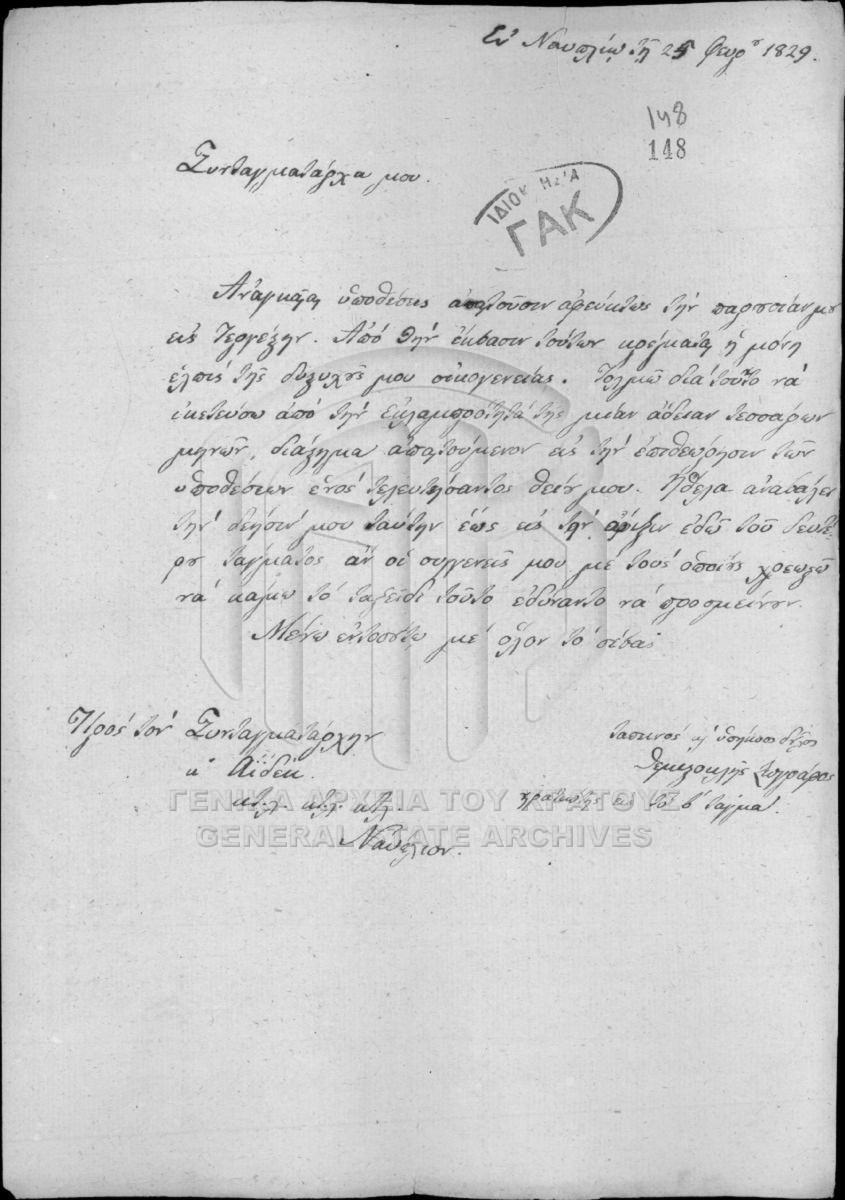 Ἐν Ναυπλίῳ τῇ 25 Φευρ 1829.
148
148
Συνταγματάρχα μου.
ΙΔΙΟΚΤΗΣΙΑ
ΓΑΚ
Ἀναγκαῖαι ὑποθέσεις ἀπαιτοῦσιν ἀφεύκτως τὴν παρουσίαν μου
εἰς Τεργέστην. Ἀπὸ τὴν ἔκβασιν τούτων κρέμαται ἡ μόνη
ἐλπὶς τῆς δυστυχοῦς μου οἰκογενείας. Τολμῶ διὰ τοῦτο νὰ
ἱκετεύσω ἀπὸ τὴν ἐκλαμπρότητά της μίαν ἄδειαν τεσσάρων
μηνῶν, διάστημα ἀπαιτούμενον εἰς τὴν ἐπιθεώρησιν τῶν
ὑποθέσεων ἑνὸς τελευτήσαντος θείου μου. Ἤθελα ἀναβάλει
τὴν δέησίν μου ταύτην ἕως εἰς τὴν ἄφιξιν ἐδῶ τοῦ δευτέ-
ρου τάγματος ἂν οἱ συγγενεῖς μου μὲ τοὺς ὁποίους χρεωστῶ
νὰ κάμω τὸ ταξείδι τοῦτο ἐδύναντο νὰ προσμείνουν.
Μένω ἐντοσούτῳ μὲ ὅλον τὸ σέβας
Πρὸς τὸν Συνταγματάρχην
κ Ἄϊδεκ
κτλ. κτλ. κτλ
Ναύπλιον.
ταπεινὸς κ ὑπήκοος δοῦλος
Θεμιστοκλῆς
στρατιώτης εἰς τὸ β τάγμα.
ΓΕΝΙΚΑ ΑΡΧΕΙΑ ΤΟΥ ΚΡΑΤΟΥΣ
GENERAL STATE ARCHIVES